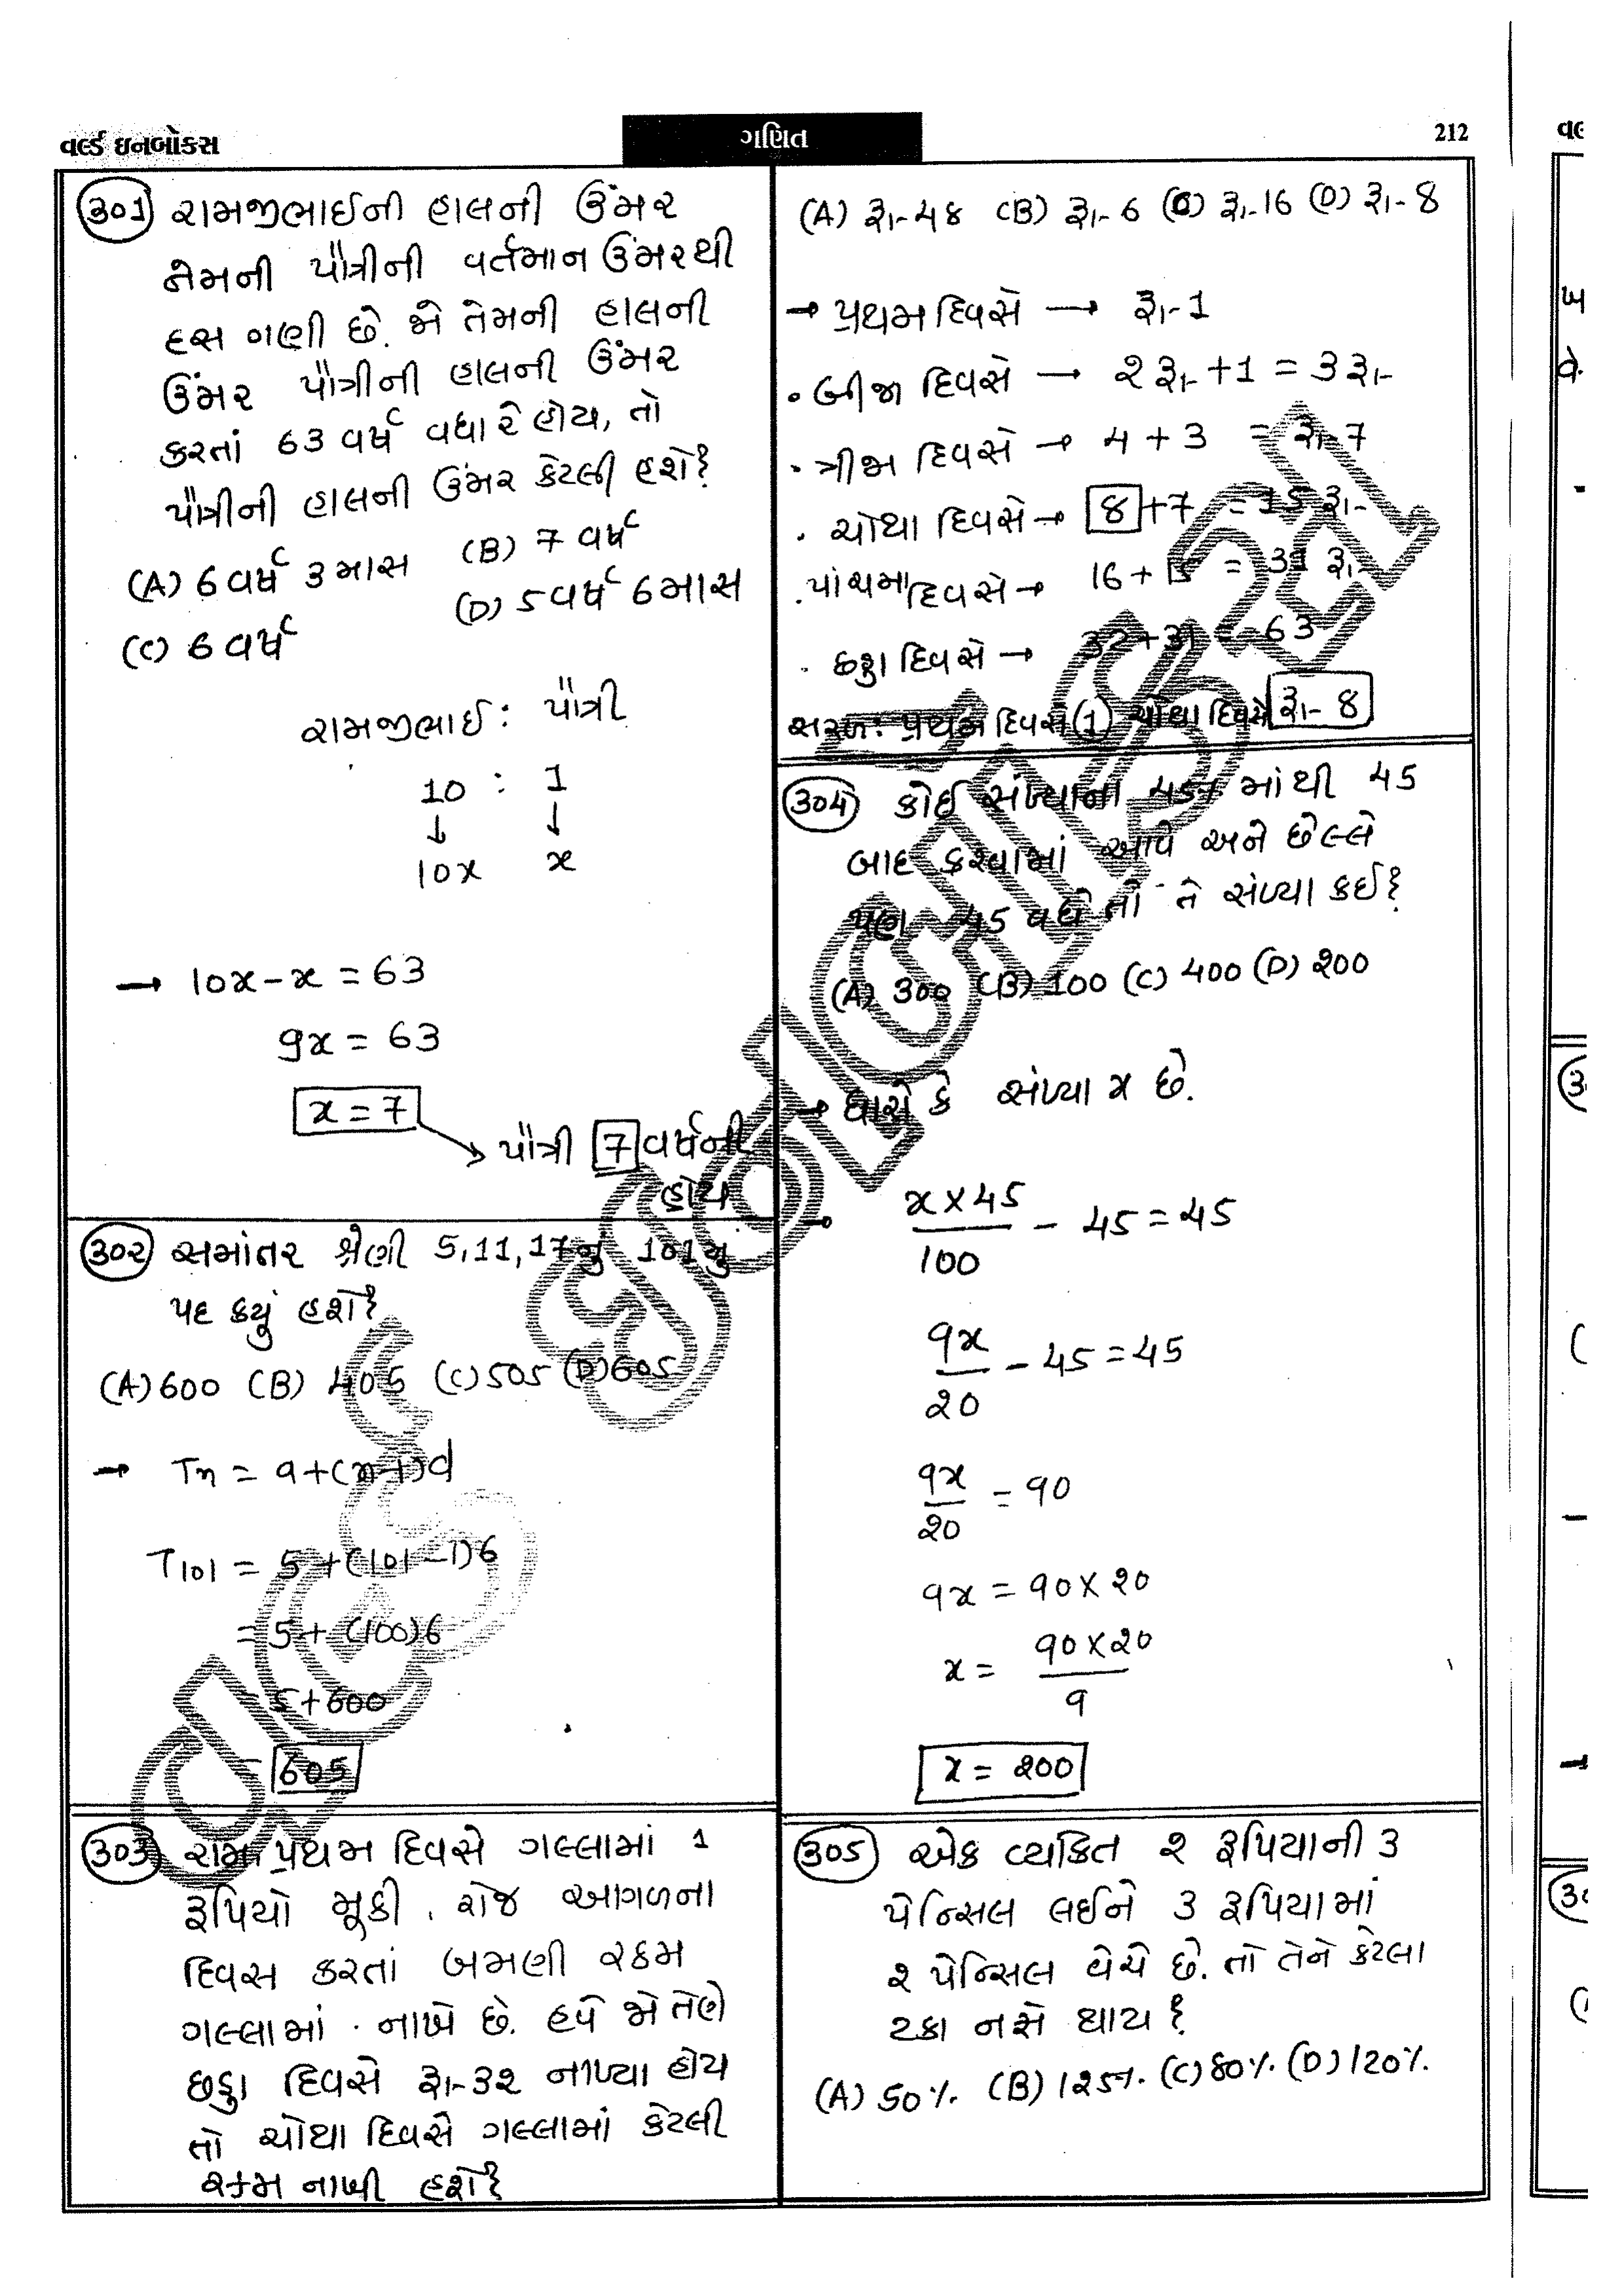 વર્લ્ડ ઇનબોકસ
ગણિત
212
301 રામજીભાઈની હાલની ઉંમર
તેમની પૌત્રીની વર્તમાન ઉંમરથી
દસ ગણી છે. જો તેમની હાલની
ઉંમર પૌત્રીની હાલની ઉંમર
કરતાં 63 વર્ષ વધારે હોય, તો
પૌત્રીની હાલની ઉંમર કેટલી હશે?
(A) 6 વર્ષ 3 માસ (B) 7 વર્ષ
(C) 6 વર્ષ (D) 5 વર્ષ 6 માસ
રામજીભાઈ : પૌત્રી
10 : 1
↓ ↓
10x x
→ 10x - x = 63
9x = 63
x = 7
પૌત્રી 7 વર્ષની
હોય
302 સમાંતર શ્રેણી 5, 11, 17નું 101મું
પદ કયું હશે?
(A) 600 (B) 405 (C) 505 (D) 605
→ Tn = a + (n-1)d
T101 = 5 + (101-1)6
= 5 + (100)6
= 5 + 600
= 605
303 રામ પ્રથમ દિવસે ગલ્લામાં 1
રૂપિયો મૂકી, રોજ આગળના
દિવસ કરતાં બમણી રકમ
ગલ્લામાં નાખે છે. હવે જો તેણે
છઠ્ઠા દિવસે રૂા- 32 નાખ્યા હોય
તો ચોથા દિવસે ગલ્લામાં કેટલી
રકમ નાખી હશે?
(A) રૂા- 48 (B) રૂા- 6 (C) રૂા- 16 (D) રૂા- 8
→ પ્રથમ દિવસે → રૂા- 1
• બીજા દિવસે → 2 રૂા- + 1 = 3 રૂા-
• ત્રીજા દિવસે → 4 + 3 = રૂા- 7
• ચોથા દિવસે → 8 + 7 = 15 રૂા-
• પાંચમા દિવસે → 16 + 15 = 31 રૂા-
• છઠ્ઠા દિવસે → 32 + 31 = 63
સરળ: પ્રથમ દિવસે (1) ચોથા દિવસે રૂા- 8
304 કોઈ સંખ્યાના 45% માંથી 45
બાદ કરવામાં આવે અને છેલ્લે
પણ 45 વધે તો તે સંખ્યા કઈ?
(A) 300 (B) 100 (C) 400 (D) 200
→ ધારો કે સંખ્યા x છે.
→ x × 45 / 100 - 45 = 45
9x / 20 - 45 = 45
9x / 20 = 90
9x = 90 × 20
x = 90 × 20 / 9
x = 200
305 એક વ્યકિત 2 રૂપિયાની 3
પેન્સિલ લઈને 3 રૂપિયામાં
2 પેન્સિલ વેચે છે. તો તેને કેટલા
ટકા નફો થાય?
(A) 50%. (B) 125%. (C) 80%. (D) 120%.